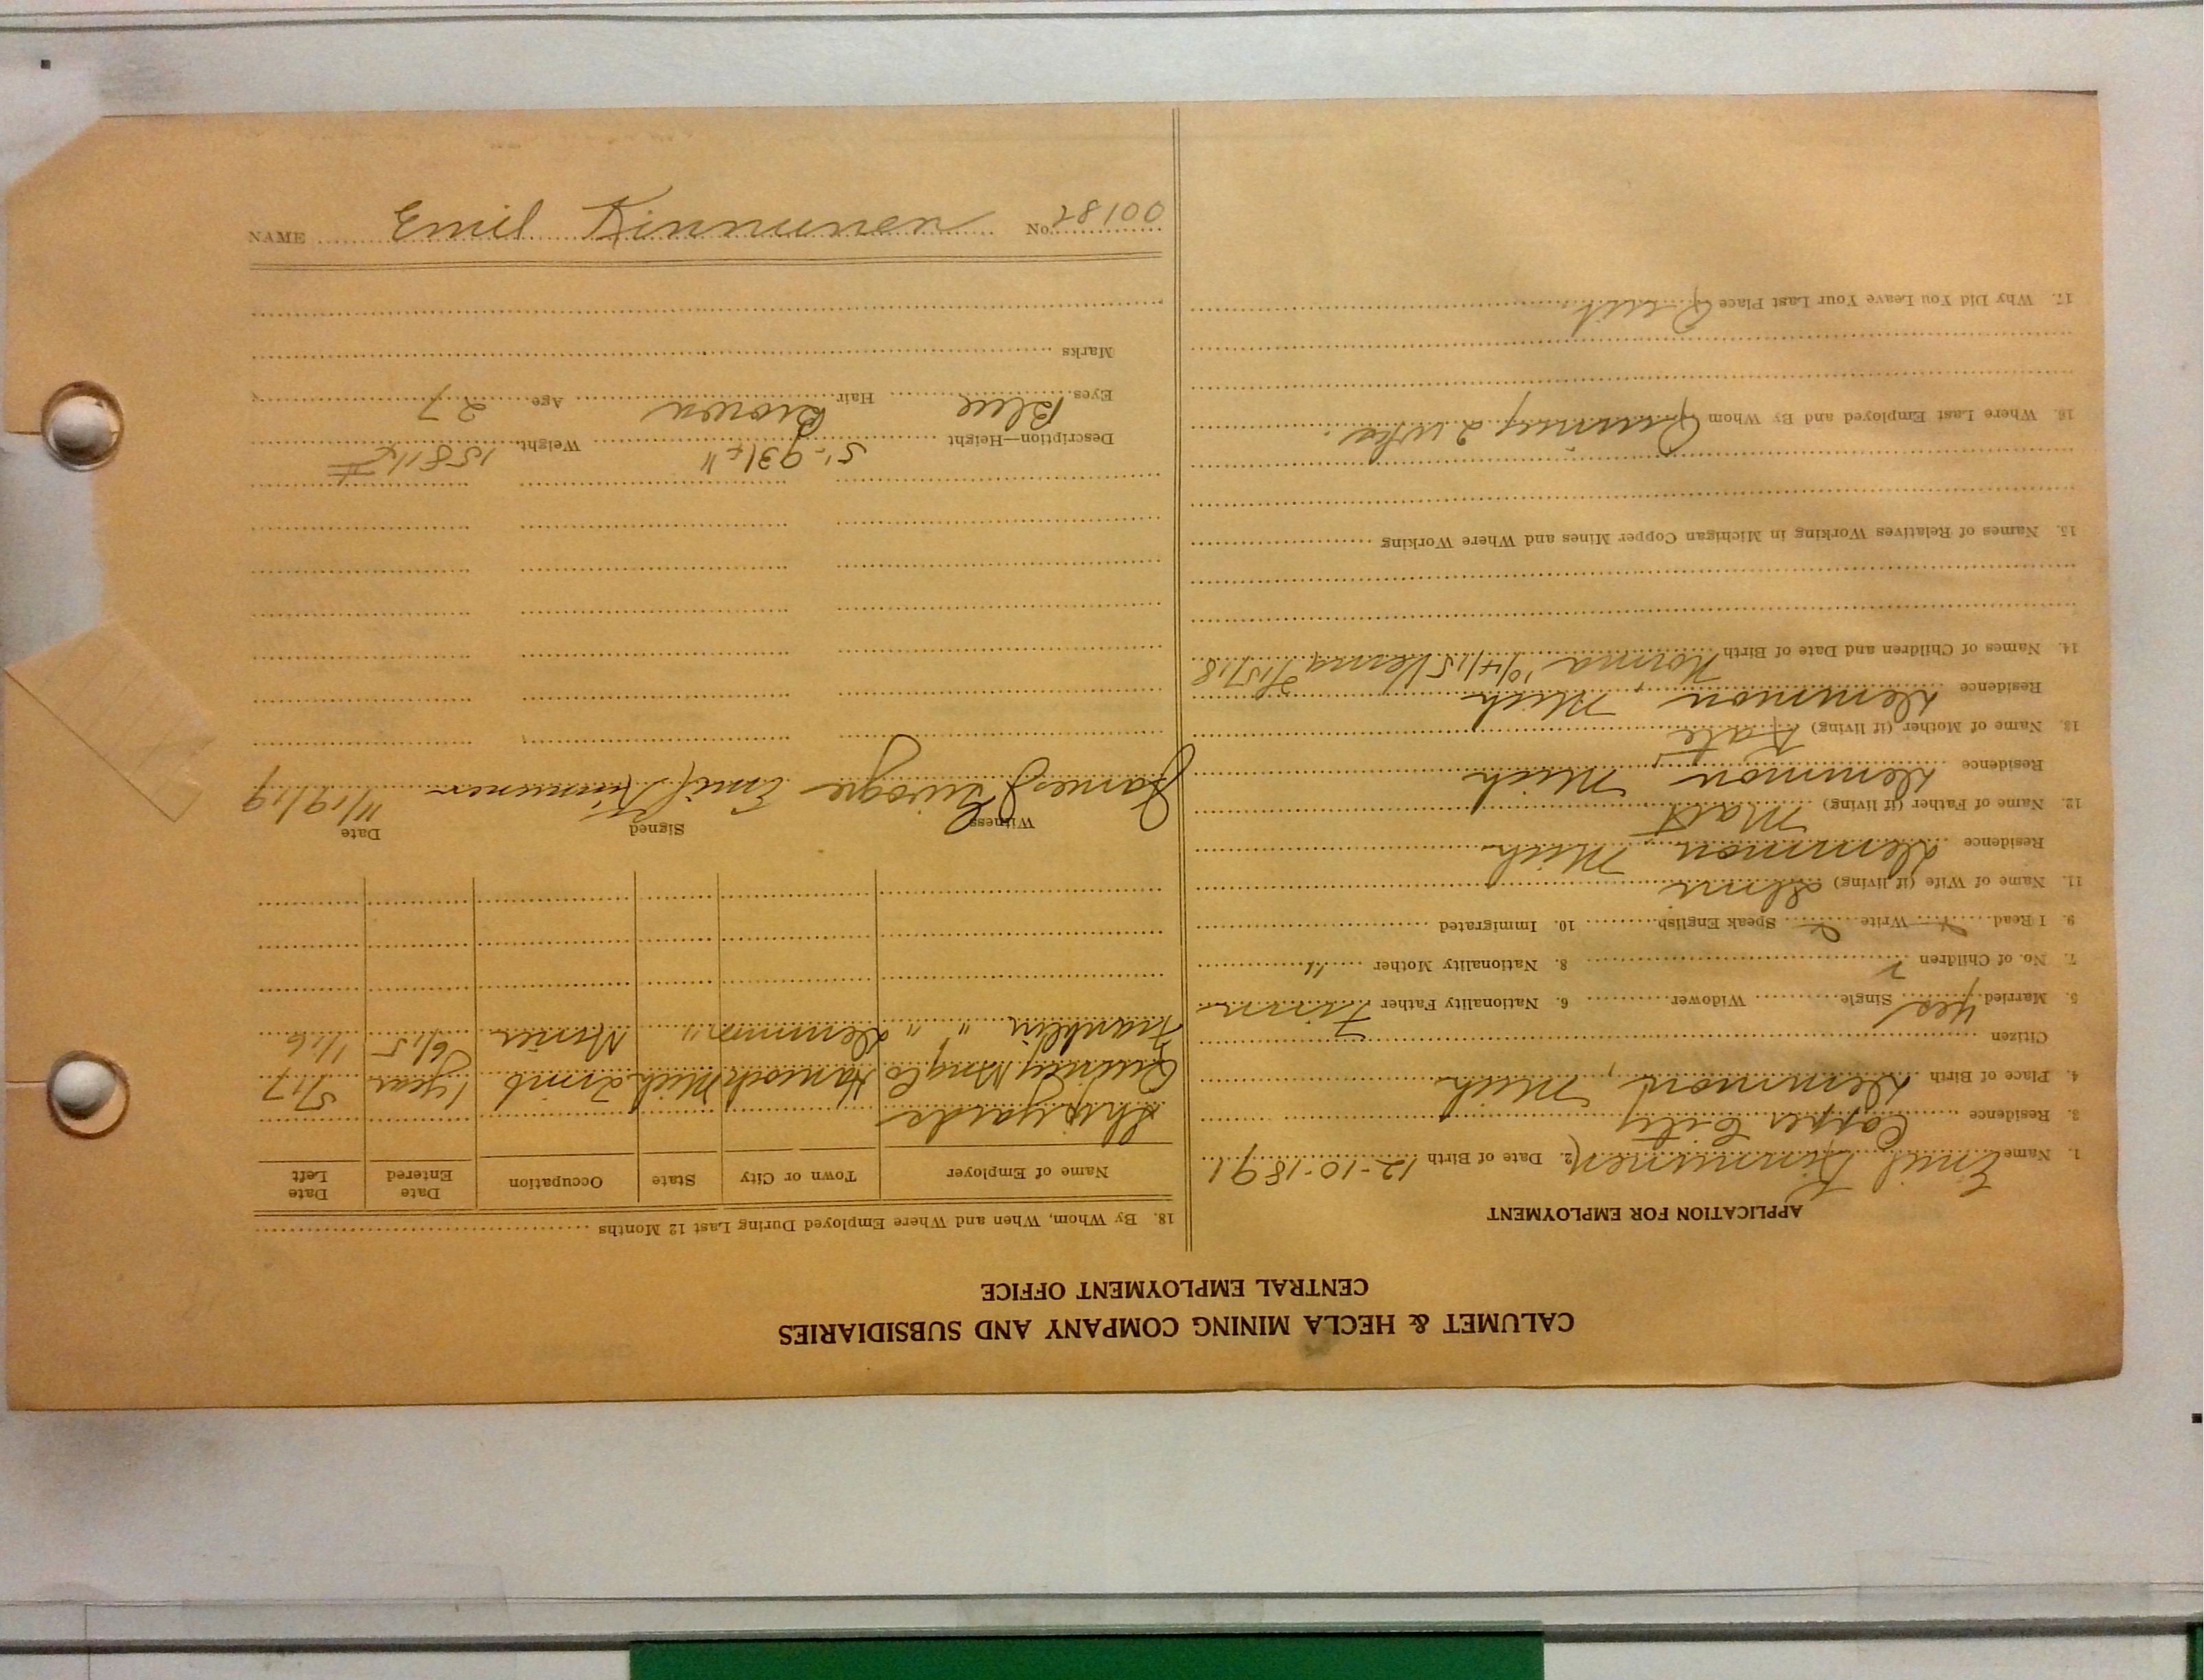 CALUMET & HECLA MINING COMPANY AND SUBSIDIARIES
CENTRAL EMPLOYMENT OFFICE
APPLICATION FOR EMPLOYMENT
1. Name Emil Kinnunen 2. Date of Birth 12-10-1891
3. Residence Copper City
4. Place of Birth Demmon, Mich
Citizen
5. Married Yes Single Widower 6. Nationality Father Finn
7. No. of Children 2 8. Nationality Mother "
9. I Read Write Speak English 10. Immigrated
11. Name of Wife (if living)
Residence Demmon, Mich
12. Name of Father (if living) Matt
Residence Demmon, Mich
13. Name of Mother (if living) Kate
Residence Demmon, Mich
14. Names of Children and Date of Birth Norma 10/4/15
15. Names of Relatives Working in Michigan Copper Mines and Where Working
16. Where Last Employed and By Whom Quincy 2 wks.
17. Why Did You Leave Your Last Place Quit
18. By Whom, When and Where Employed During Last 12 Months
Name of Employer Town or City State Occupation Date Entered Date Left
Ship yards
Quincy Mng Co Hancock Mich 1 year 5/17
Franklin " " Demmon " Miner 6/15 1/16
Witness Signed Date
James Emil Kinnunen 11/19/19
Description—Height 5'-9 3/4" Weight 158 1/2 #
Eyes Blue Hair Brown Age 27
Marks
NAME Emil Kinnunen No. 28100